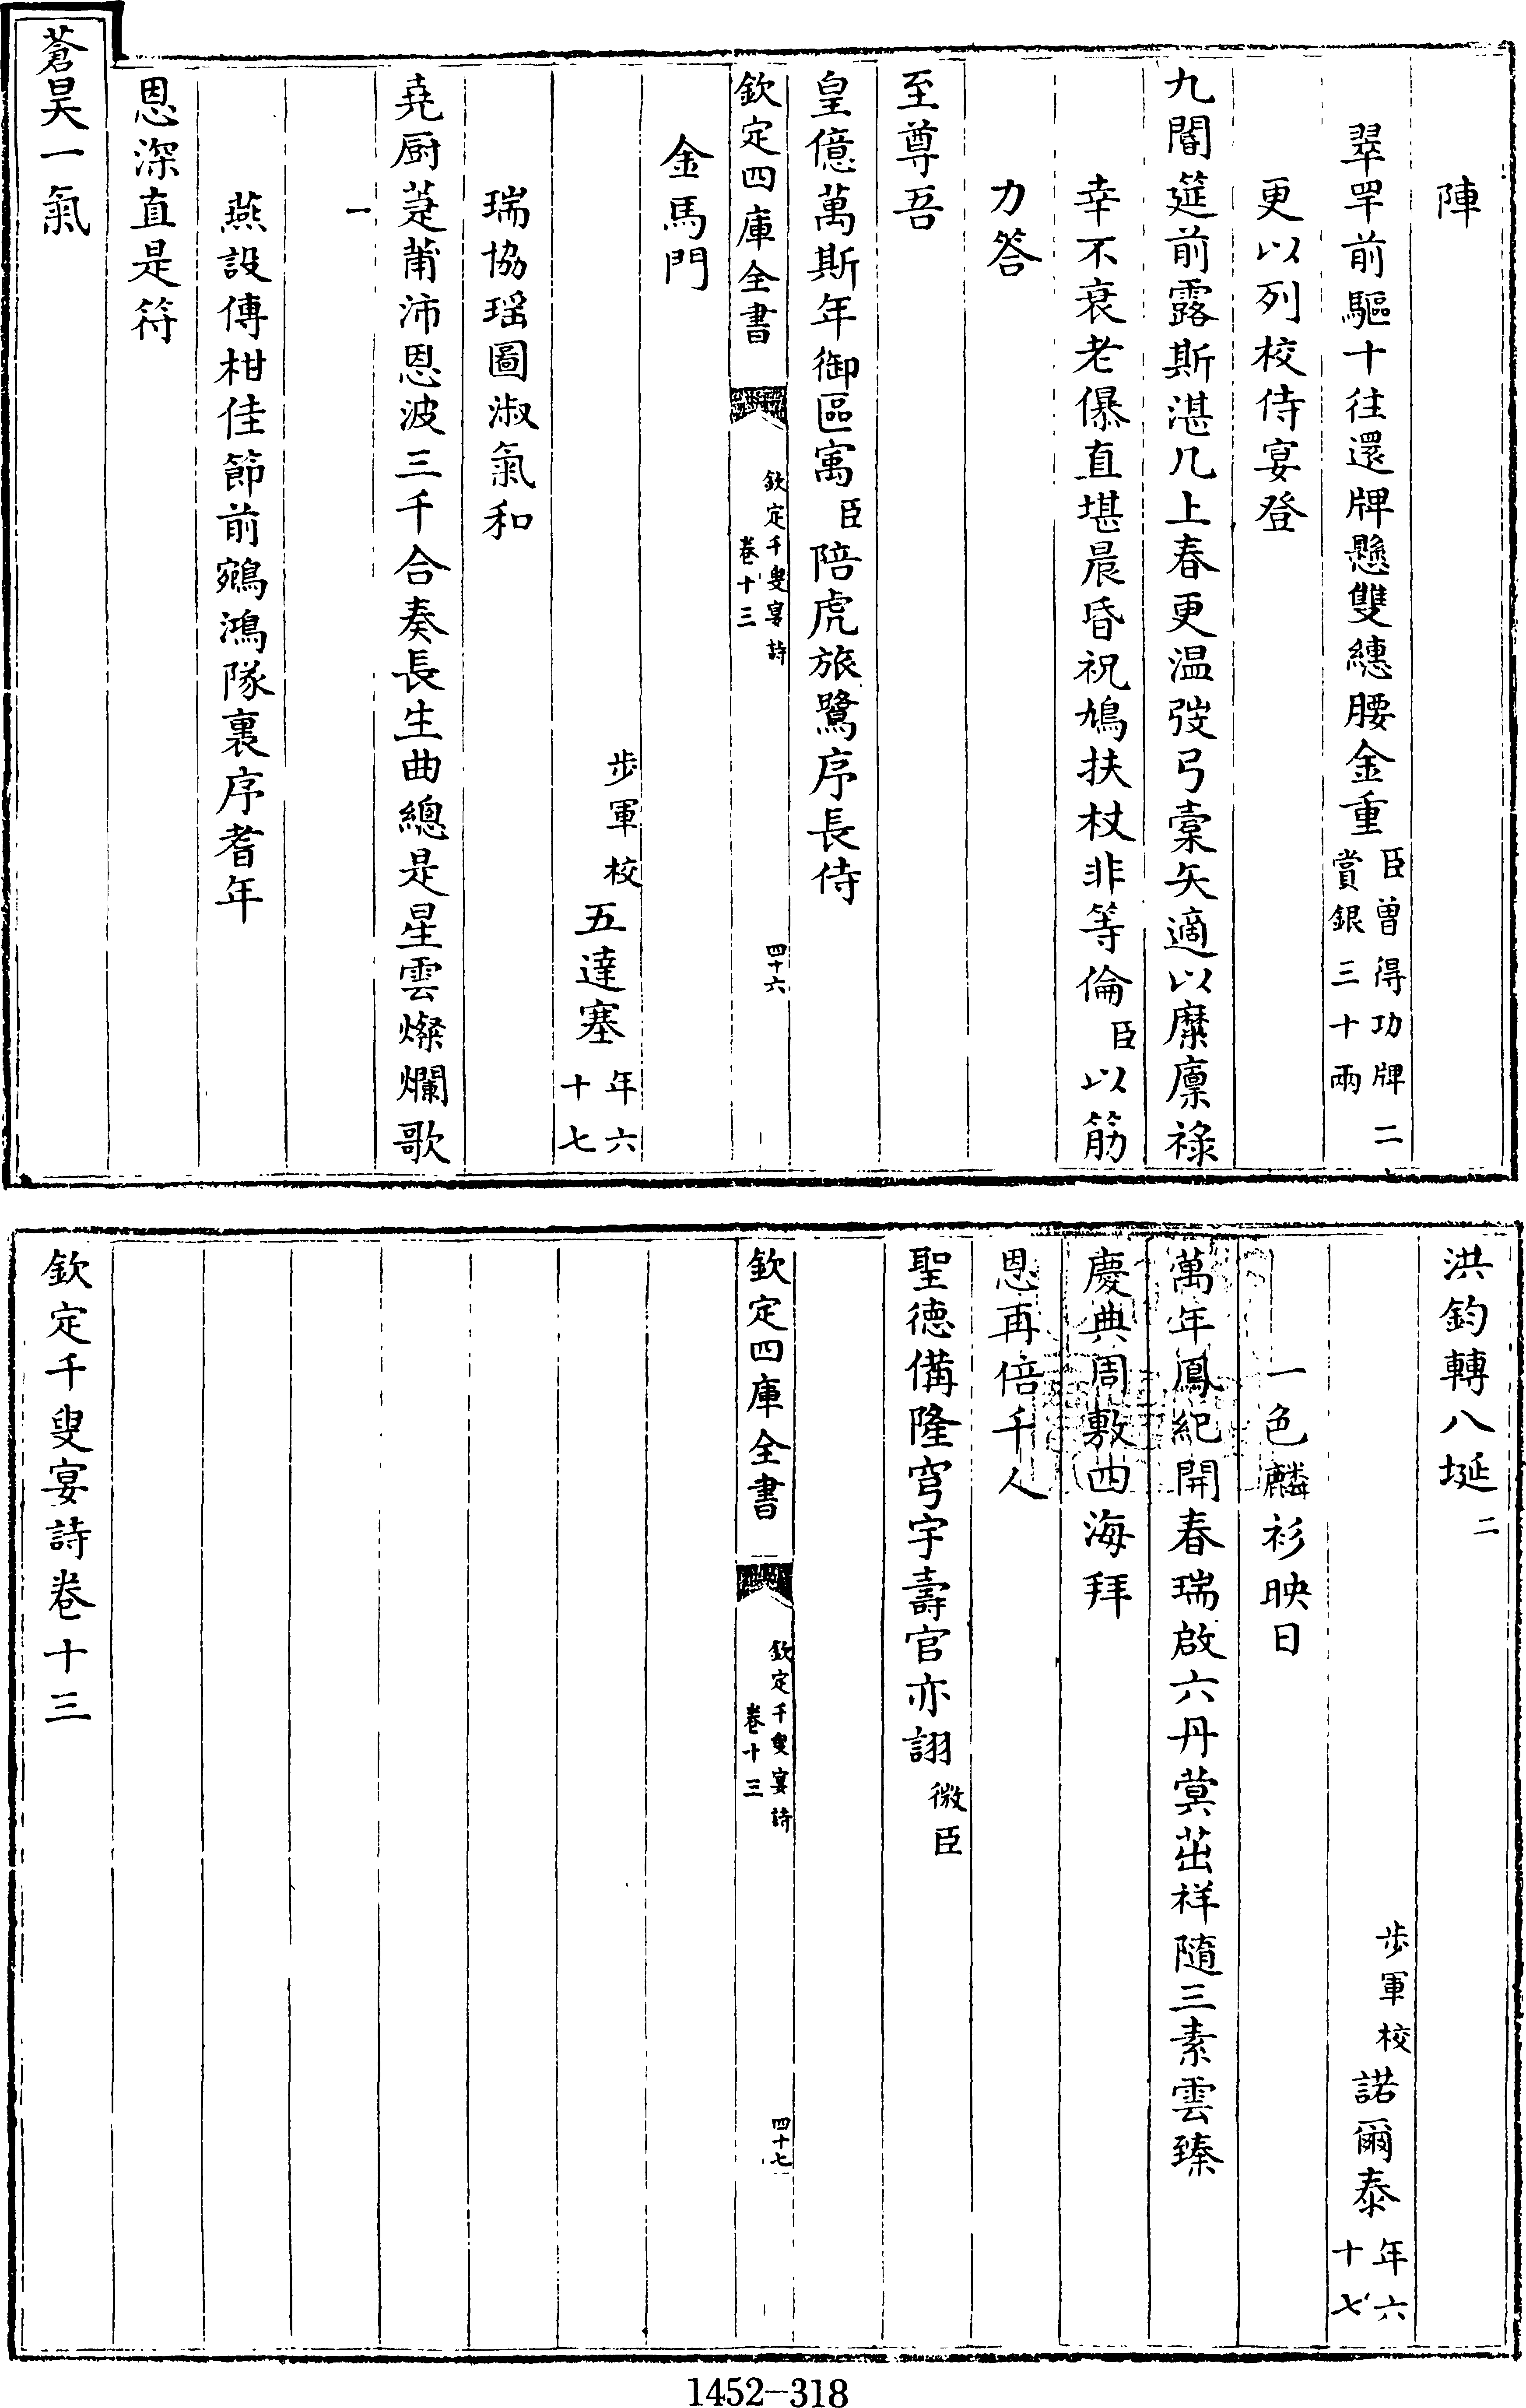 陣
翠罕前驅十往還牌懸雙繐腰金重臣曽得功牌二賞銀三十兩
更以列校侍宴登
九閽筵前露斯湛几上春更温弢弓櫜矢適以糜廪祿
幸不衰老儤直堪晨昏祝鳩扶杖非等倫臣以筋
力答
至尊吾
皇億萬斯年御區㝢臣陪虎旅鷺序長侍
欽定四庫全書 欽定千叟宴詩 卷十三 四十六
金馬門
步軍校五達塞年六十七
瑞協瑶圖淑氣和
堯厨萐莆沛恩波三千合奏長生曲總是星雲燦爛歌
一
燕設傳柑佳節前鵷鴻隊裏序耆年
恩深直是符
蒼昊一氣
洪鈞轉八埏二
步軍校諾爾泰年六十七
一色麟衫映日
萬年鳳紀開春瑞啟六丹蓂茁祥隨三素雲臻
慶典周敷四海拜
恩再倍千人
聖德備隆穹宇壽官亦詡微臣
欽定四庫全書 欽定千叟宴詩 卷十三 四十七
欽定千叟宴詩卷十三
1452-318